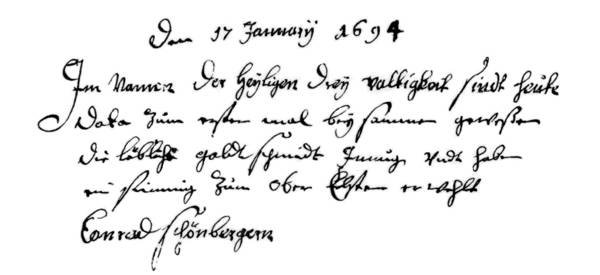 Den 17 Januarÿ 1694
Im Namen Der Heyligen Dreÿ valtigkeit sindt heute
Dato Zum ersten mal beÿ sammen geweßen
Die Löbliche goldt schmidt Innung undt haben
ein stimmig Zum Ober Elsten erwehlt
Conrad schönbergern